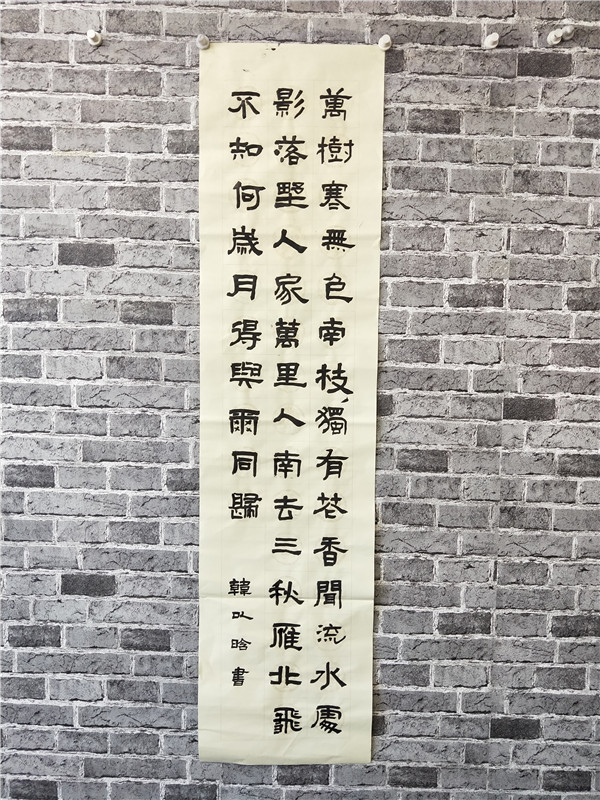 萬樹寒無色南枝獨有花香聞流水處
影落墅人家萬里人南去三秋雁北飛
不知何歲月得與爾同歸
韓以晗書